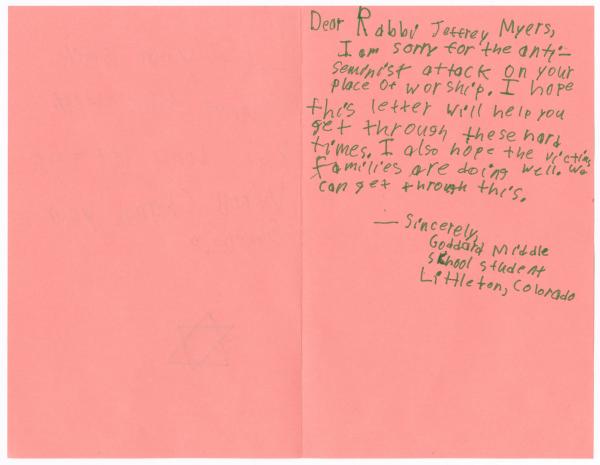 Dear Rabbi Jeffrey Myers,
I am sorry for the anti-
seminist attack on your
place of worship. I hope
this letter will help you
get through these hard
times. I also hope the victims
families are doing well. We
can get through this.
— Sincerely,
Goddard Middle
School student
Littleton, Colorado